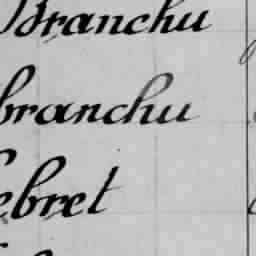 Branchu
branchu
ebret